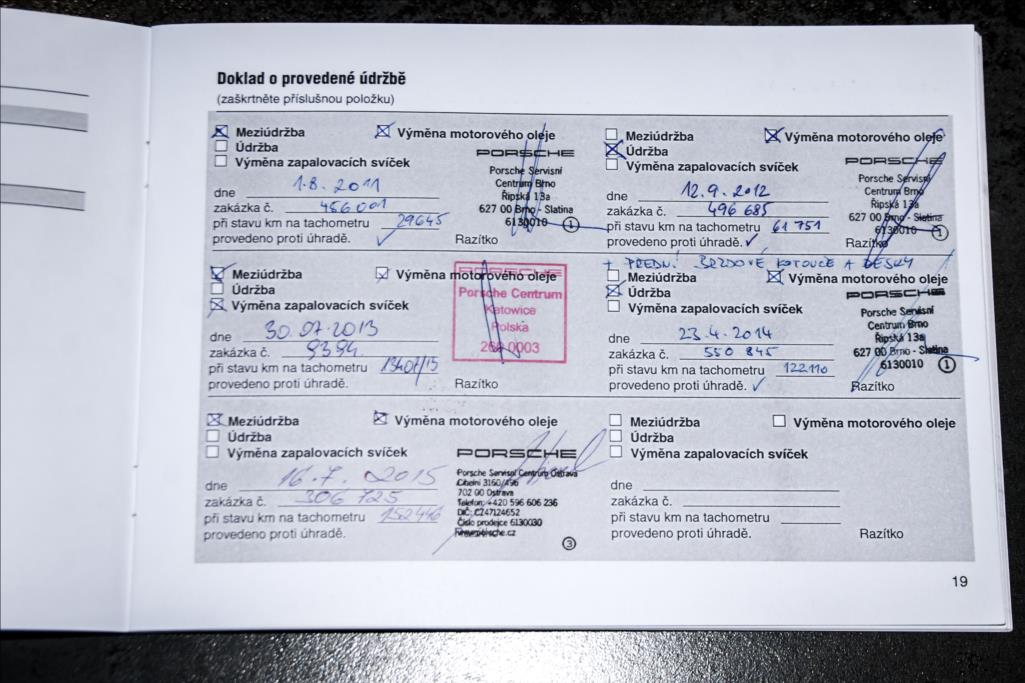 Doklad o provedené údržbě
(zaškrtněte příslušnou položku)
Meziúdržba Výměna motorového oleje
Údržba
Výměna zapalovacích svíček
PORSCHE
Porsche Servisní
Centrum Brno
Řipská 13a
627 00 Brno - Slatina
6130010 1
dne 1.8. 2011
zakázka č. 456001
při stavu km na tachometru 29645
provedeno proti úhradě. Razítko
Meziúdržba Výměna motorového oleje
Údržba
Výměna zapalovacích svíček
PORSCHE
Porsche Servisní
Centrum Brno
Řipská 13a
627 00 Brno - Slatina
6130010 1
dne 12.9. 2012
zakázka č. 496 685
při stavu km na tachometru 61 751
provedeno proti úhradě. Razítko
+ PŘEDNÍ BRZDOVÉ KOTOUČE A DESKY
Meziúdržba Výměna motorového oleje
Údržba
Výměna zapalovacích svíček
PORSCHE
Porsche Centrum
Katowice
Polska
260 0003
dne 30.07.2013
zakázka č. 9394
při stavu km na tachometru
provedeno proti úhradě. Razítko
Meziúdržba Výměna motorového oleje
Údržba
Výměna zapalovacích svíček
PORSCHE
Porsche Servisní
Centrum Brno
Řipská 13a
627 00 Brno - Slatina
6130010 1
dne 23.4. 2014
zakázka č. 550 845
při stavu km na tachometru 122110
provedeno proti úhradě. Razítko
Meziúdržba Výměna motorového oleje
Údržba
Výměna zapalovacích svíček
PORSCHE
Porsche Servisní Centrum Ostrava
Cihelní 3160/49b
702 00 Ostrava
Telefon: +420 596 606 236
DIČ: CZ47124652
Číslo prodejce 6130030
3
dne 16.7. 2015
zakázka č. 306 725
při stavu km na tachometru 152446
provedeno proti úhradě.
Meziúdržba Výměna motorového oleje
Údržba
Výměna zapalovacích svíček
dne
zakázka č.
při stavu km na tachometru
provedeno proti úhradě. Razítko
19